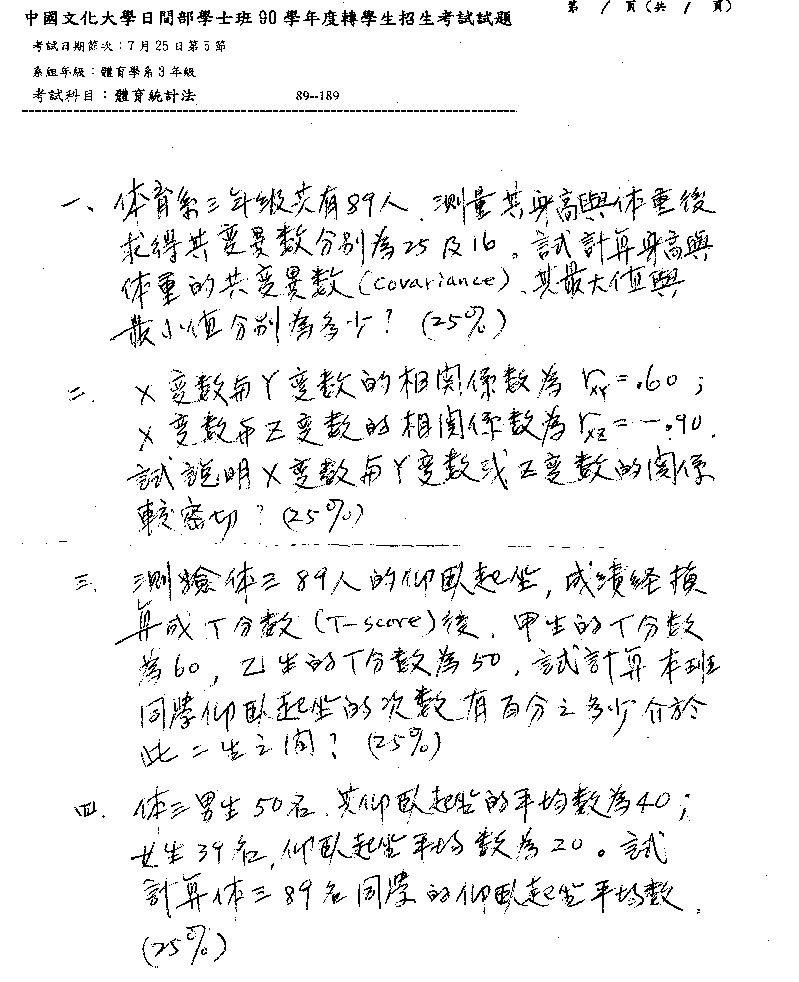 中國文化大學日間部學士班90學年度轉學生招生考試試題
第 1 頁(共 1 頁)
考試日期節次：7月25日第5節
系組年級：體育學系3年級
考試科目：體育統計法 89--189
一、体育系三年級共有89人，測量其身高與体重後
求得其變異數分別為25及16。試計算身高與
体重的共變異數(covariance)，其最大值與
最小值分別為多少？(25%)
二、X變數与Y變數的相関係數為 rxy=.60；
X變數与Z變數的相関係數為rxz=-.90.
試說明X變數与Y變數或Z變數的関係
較密切？(25%)
三、測驗体三89人的仰臥起坐，成績経換
算成T分數(T-score)後，甲生的T分數
為60，乙生的T分數為50，試計算本班
同學仰臥起坐的次數有百分之多少介於
此二生之間？(25%)
四、体三男生50名，其仰臥起坐的平均數為40；
女生39名，仰臥起坐平均數為20。試
計算体三89名同學的仰臥起坐平均數。
(25%)